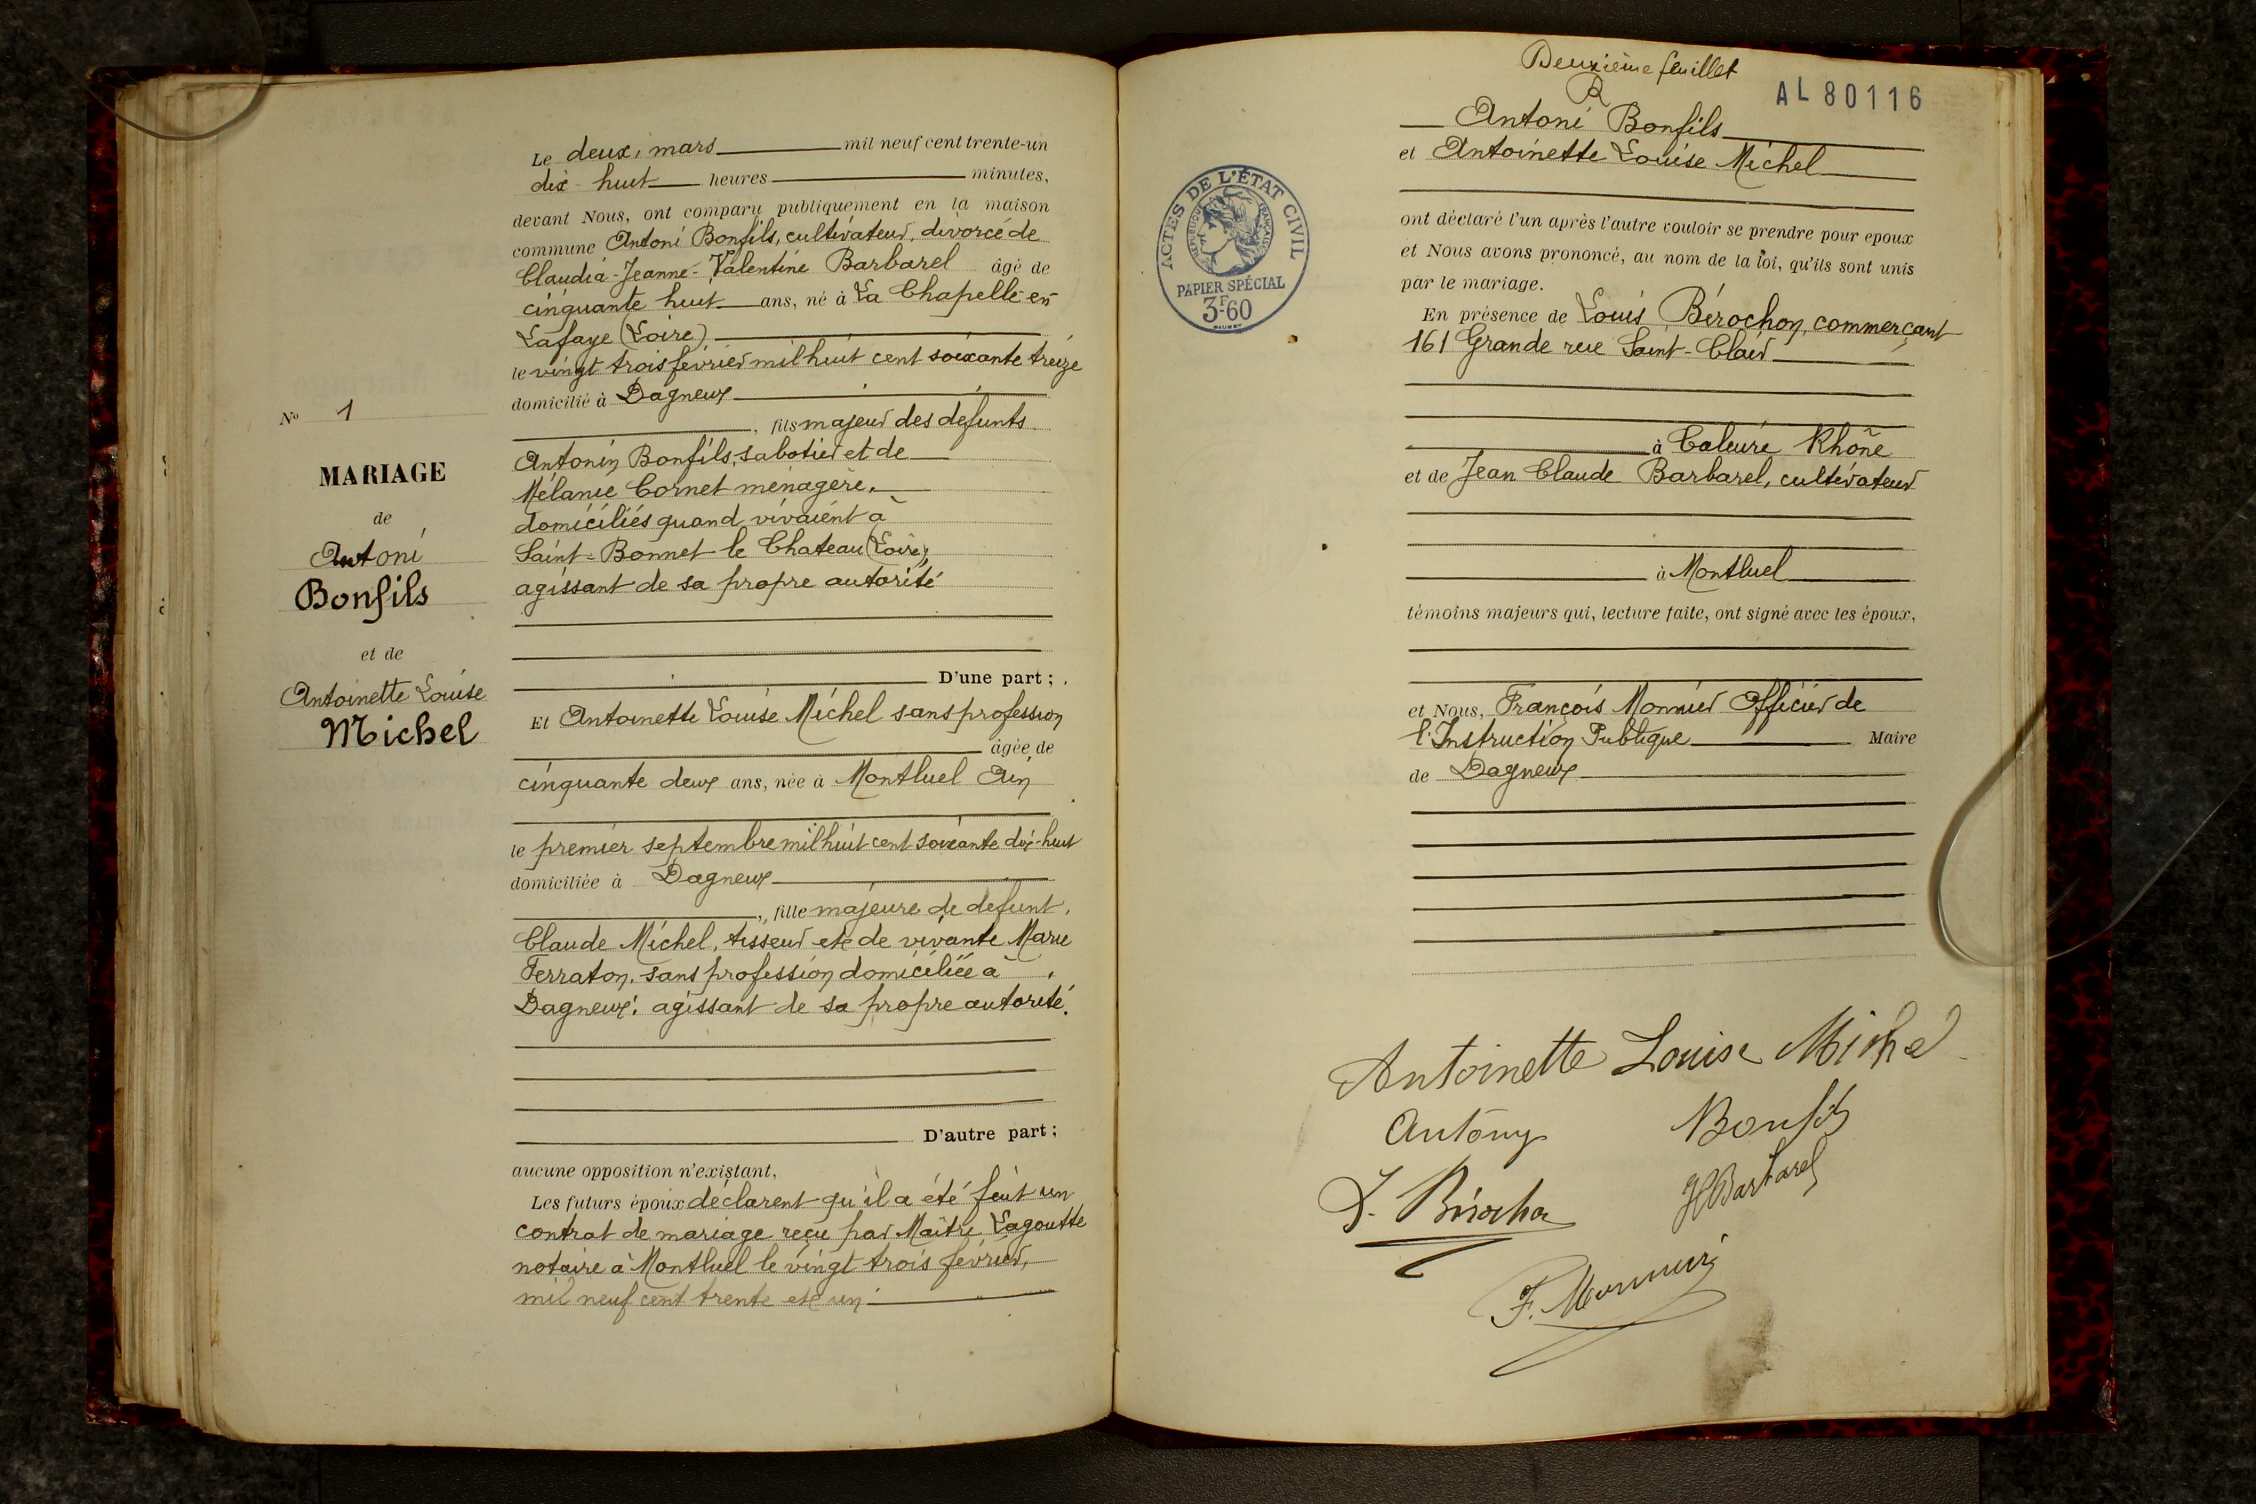 Le deux, mars mil neuf cent trente-un
dix-huit heures minutes,
devant Nous, ont comparu publiquement en la maison
commune Antoni Bonfils, cultivateur, divorcé de
Claudia-Jeanne-Valentine Barbarel âgé de
cinquante huit ans, né à La Chapelle-en
Lafaye (Loire)
le vingt trois février mil huit cent soixante treize
domicilié à Dagneux
, fils majeur des defunts
Antonin Bonfils, sabotier et de
Mélanie Cornet ménagère,
domiciliés quand vivaient à
Saint-Bonnet le Chateau (Loire),
agissant de sa propre autorité
D'une part ;
Et Antoinette Louise Michel sans profession
âgée de
cinquante deux ans, née à Montluel Ain
le premier septembre mil huit cent soixante dix-huit
domiciliée à Dagneux
, fille majeure de defunt
Claude Michel, tisseur et de vivante Marie
Ferraton, sans profession domiciliée à
Dagneux; agissant de sa propre autorité.
D'autre part ;
aucune opposition n'existant,
Les futurs époux déclarent qu'il a été fait un
contrat de mariage reçu par Maître Lagoutte
notaire à Montluel le vingt trois février,
mil neuf cent trente et un
No 1
MARIAGE
de
Antoni
Bonfils
et de
Antoinette Louise
Michel
Deuxième feuillet
R
AL 80116
ACTES DE L'ÉTAT CIVIL
RÉPUBLIQUE FRANÇAISE
PAPIER SPÉCIAL
3F.60
Antoni Bonfils
et Antoinette Louise Michel
ont déclaré l'un après l'autre vouloir se prendre pour epoux
et Nous avons prononcé, au nom de la loi, qu'ils sont unis
par le mariage.
En présence de Louis Bérochon, commerçant
161 Grande rue Saint-Clair
à Caluire Rhône
et de Jean Claude Barbarel, cultivateur
à Montluel
témoins majeurs qui, lecture faite, ont signé avec les époux,
et Nous, François Monnier Officier de
l'Instruction Publique Maire
de Dagneux
Antoinette Louise Michel
Antony Bonfils
L. Bérochon JC Barbarel
F. Monnier